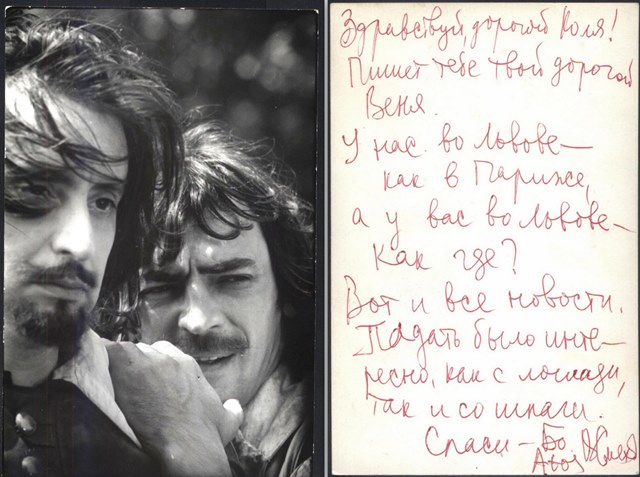 Здравствуй, дорогой Коля!
Пишет тебе твой дорогой
Веня.
У нас во Львове—
как в Париже,
а у вас во Львове—
как где?
Вот и все новости.
Падать было инте-
ресно, как с лошади,
так и со шпаги.
Спаси – Бо